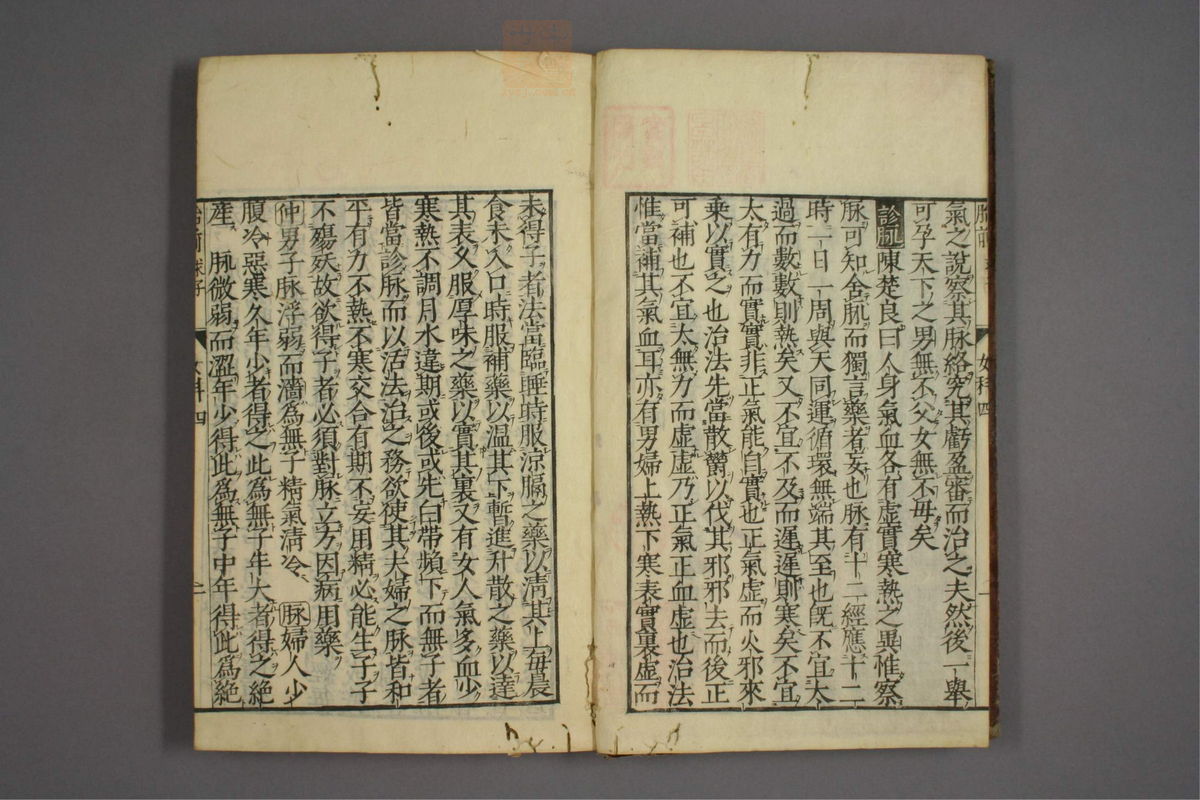 氣之說察其脉絡究其虧盈審而治之夫然後一舉
可孕天下之男無不父女無不母矣
診脉陳楚良曰人身氣血各有虛實寒熱之異惟察
脉可知舍脉而獨言藥者妄也脉有十二經應十二
時一日一周與天同運循環無端其至也旣不宜太
過而數數則熱矣又不宜不及而遲遲則寒矣不宜
太有力而實實非正氣能自實也正氣虛而火邪來
乗以實之也治法先當散欝以伐其邪邪去而後正
可補也不宜太無力而虛虛乃正氣正血虛也治法
惟當補其氣血耳亦有男婦上熱下寒表實裏虛而
未得子者法當臨睡時服涼膈之藥以淸其上每晨
食未入口時服補藥以温其下暫進升散之藥以達
其表久服厚味之藥以實其裏又有女人氣多血少
寒熱不調月水違期或後或先白帶頻下而無子者
皆當診脉而以活法治之務欲使其夫婦之脉皆和
平有力不熱不寒交合有期不妄用精必能生子子
不殤殀故欲得子者必須對脉立方因病用藥
仲男子脉浮弱而濇爲無子精氣淸冷 脉婦人少
腹冷惡寒久年少者得之此爲無子年大者得之絶
産 脉微弱而澀年少得此爲無子中年得此爲絶
女科四
女科四